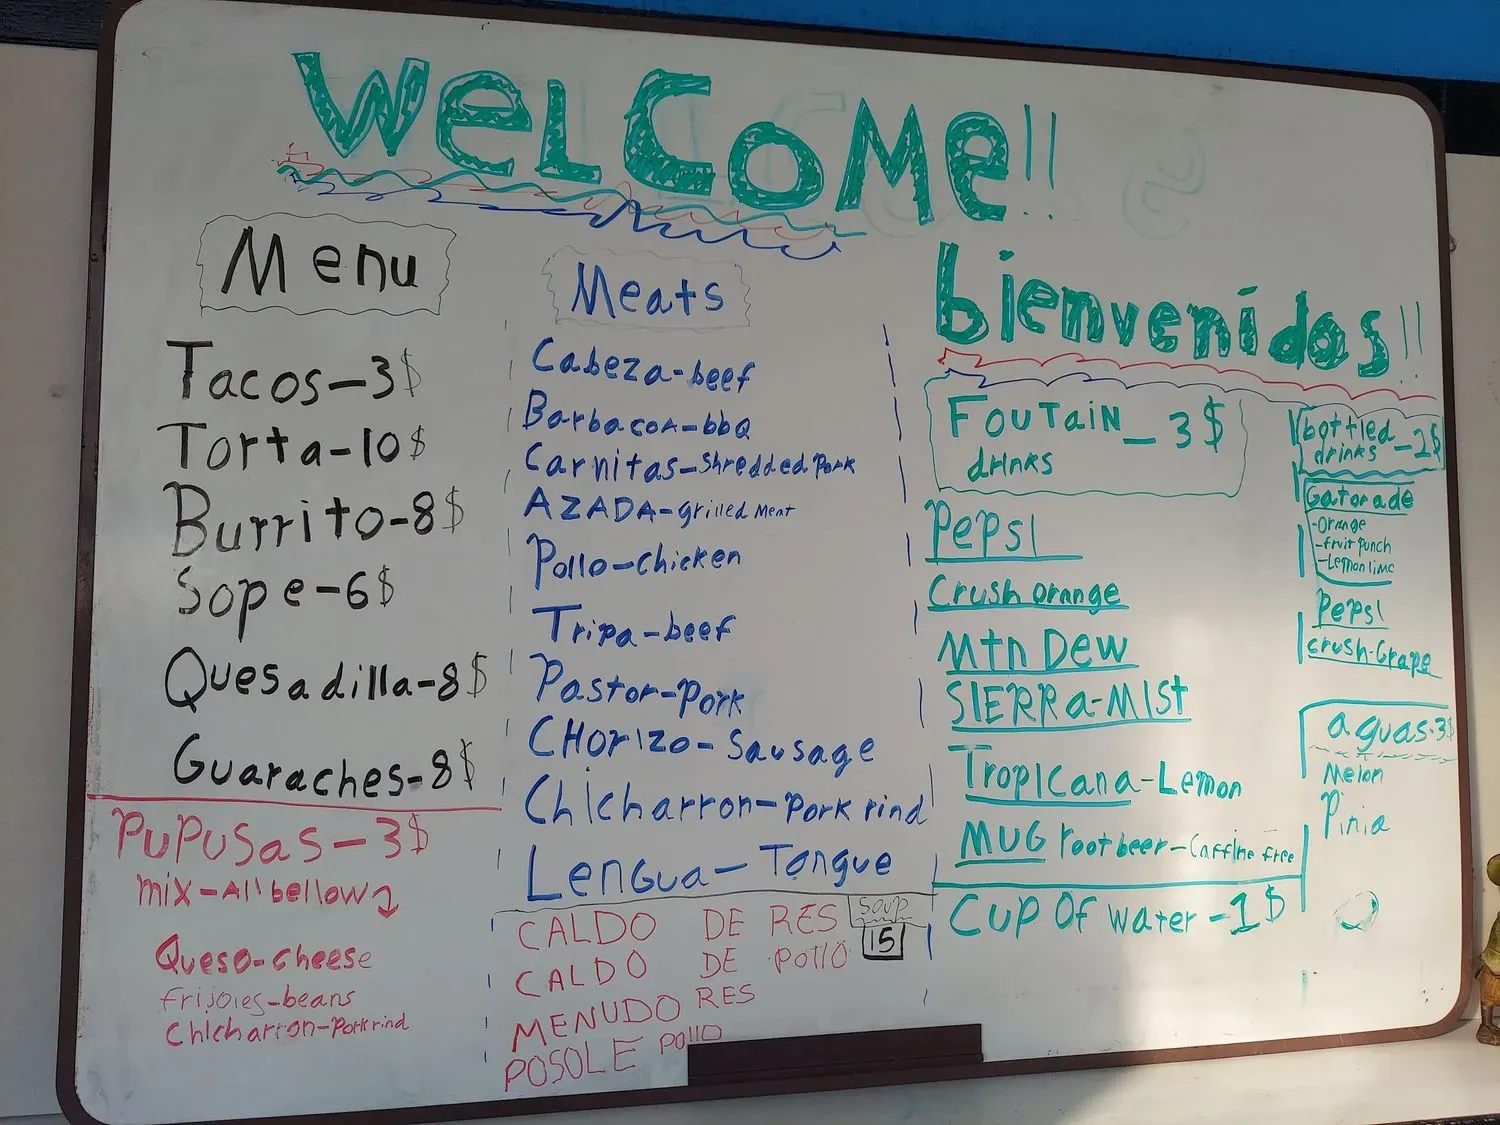 WeLCoMe!!
Menu
Tacos-3$
Torta-10$
Burrito-8$
Sope-6$
Quesadilla-8$
Guaraches-8$
PUPUSas-3$
mix-All bellow
Queso-cheese
frijoles-beans
Chicharron-Porkrind
Meats
Cabeza-beef
BarbacoA-bbQ
Carnitas-Shredded Pork
AZADA-grilled Meat
Pollo-Chicken
Tripa-beef
Pastor-Pork
CHorizo-Sausage
Chicharron-Pork rind
LenGua-Tongue
SOUP
15
CALDO DE RES
CALDO DE POllO
MENUDO RES
POSOLE POllO
bienvenidos!!
FOUTAIN-3$
drinks
PepsI
Crush orange
Mtn Dew
SIERRa-MISt
TropIcana-Lemon
MUG rootbeer-Caffine free
Cup Of water-1$
bottled-2$
drinks
Gatorade
-Orange
-fruit punch
-Lemonlime
PepsI
crush-Grape
aguas-3$
Melon
Pinia